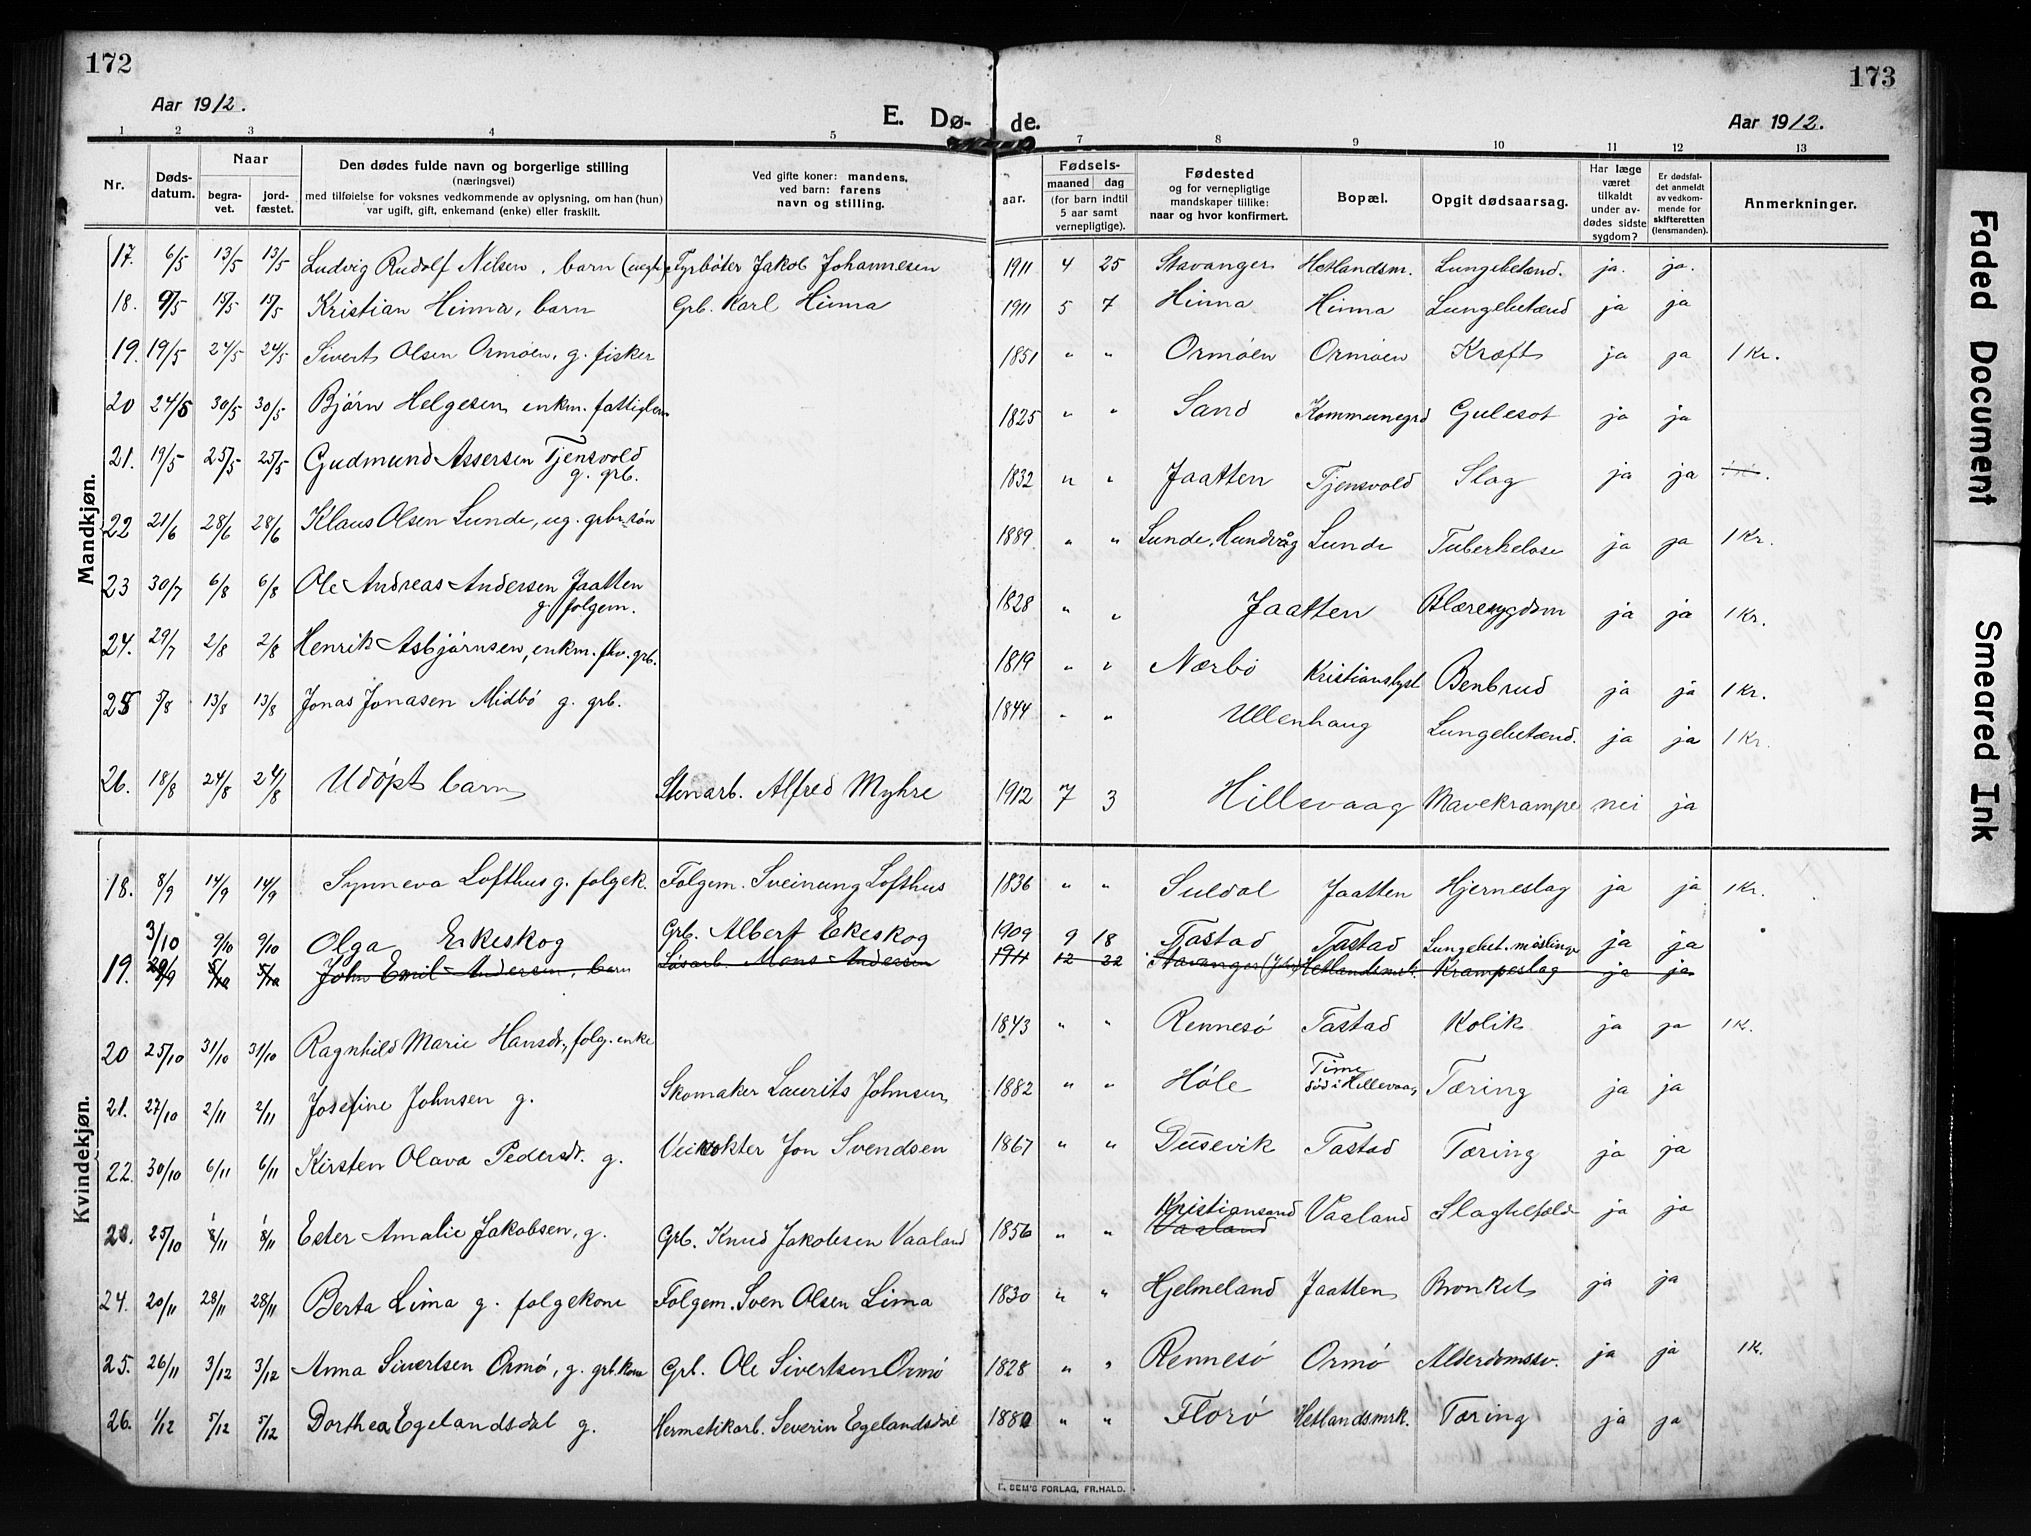 172
173
Aar 1912.
E. Dø-
de.
Aar 1912.
1 2 3 4 5 7 8 9 10 11 12 13
Nr.
Døds-
datum.
Naar
begra-
vet.
jord-
fæstet.
Den dødes fulde navn og borgerlige stilling
(næringsvei)
med tilføielse for voksnes vedkommende av oplysning, om han (hun)
var ugift, gift, enkemand (enke) eller fraskilt.
Ved gifte koner: mandens,
ved barn: farens
navn og stilling.
aar.
Fødsels-
maaned dag
(for barn indtil
5 aar samt
vernepligtige).
Fødested
og for vernepligtige
mandskaper tillike:
naar og hvor konfirmert.
Bopæl.
Opgit dødsaarsag.
Har læge
været
tilkaldt
under av-
dødes sidste
sygdom?
Er dødsfal-
det anmeldt
av vedkom-
mende for
skifteretten
(lensmanden).
Anmerkninger.
Mandkjøn.
17. 6/5 13/5 13/5 Ludvig Rudolf Nilsen, barn (uegte) Fyrbøter Jakob Johannesen 1911 4 25 Stavanger Hetlandsm. Lungebetænd. ja. ja.
18. 9/5 15/5 15/5 Kristian Hinna, barn Grb. Karl Hinna 1911 5 7 Hinna Hinna Lungebetænd ja ja
19. 19/5 24/5 24/5 Sivert Olsen Ormøen, g. fisker 1851 " " Ormøen Ormøen Kræft ja ja 1 Kr.
20 24/5 30/5 30/5 Bjørn Helgesen enkm. fattiglem 1825 " " Sand Kommunegrd Gulesot ja ja
21. 19/5 25/5 25/5 Gudmund Assersen Tjensvold
g. grb. 1832 " " Jaatten Tjensvold Slag ja ja
22 21/6 28/6 28/6 Klaus Olsen Lunde, ug. grbr.søn 1889 " " Lunde, Hundvåg Lunde Tuberkelose ja ja 1 Kr.
23 30/7 6/8 6/8 Ole Andreas Andersen Jaatten
g. folgem. 1828 " " Jaatten Blæresygdom ja ja 1 Kr.
24. 29/7 2/8 2/8 Henrik Asbjørnsen, enkm. fhv. grb. 1819 " " Nærbø Kristianslyst Benbrud ja ja 1 Kr.
25 5/8 13/8 13/8 Jonas Jonasen Midbø g. grb. 1844 " " Ullenhaug Lungebetænd. ja ja 1 Kr.
26. 18/8 24/8 24/8 Udøpt barn Stenarb. Alfred Myhre 1912 7 3 Hillevaag Mavekrampe nei ja
Kvindekjøn.
18. 8/9 14/9 14/9 Synneva Lofthus g. folgek. Folgem. Sveinung Lofthus 1836 " " Suldal Jaatten Hjerneslag ja ja 1 Kr.
3/10 9/10 9/10 Olga Ekeskog Grb. Albert Ekeskog 1909 9 18 Tastad Tastad Lungebet. mæslinge ja ja
19. 29/9 5/10 5/10 John Emil Andersen, barn Løsarb. Mons Andersen 1911 12 22 Stavanger Hetlandsmrk. Krampeslag ja ja
20 25/10 31/10 31/10 Ragnhild Marie Hansdr., folg. enke 1843 " " Rennesø Tastad Kolik ja ja 1 K.
21. 27/10 2/11 2/11 Josefine Johnsen g. Skomaker Laurits Johnsen 1882 " " Høle Time
død i Hillevaag, Tæring ja ja
22. 30/10 6/11 6/11 Kirsten Olava Pedersdr. g. Veivokter Jon Svendsen 1867 " " Dusevik Tastad Tæring ja ja
23. 25/10 8/11 8/11 Ester Amalie Jakobsen, g. Grb. Knud Jakobsen Vaaland 1856 " " Kristiansand
Vaaland Vaaland Slagtilfelde ja ja
24. 20/11 28/11 28/11 Berta Lima g. folgekone Folgem. Sven Olsen Lima 1830 " " Hjelmeland Jaatten Bronket ja ja
25. 26/11 3/12 3/12 Anna Sivertsen Ormø, g. grb.kone Grb. Ole Sivertsen Ormø 1828 " " Rennesø Ormø Alderdomssv. ja ja 1 K.
26. 1/12 5/12 5/12 Dorthea Egelandsdal g. Hermetikarb. Severin Egelandsdal 1880 " " Florø Hetlandsmrk. Tæring ja ja
E. SEM'S FORLAG, FR.HALD.
Faded Document
Smeared Ink